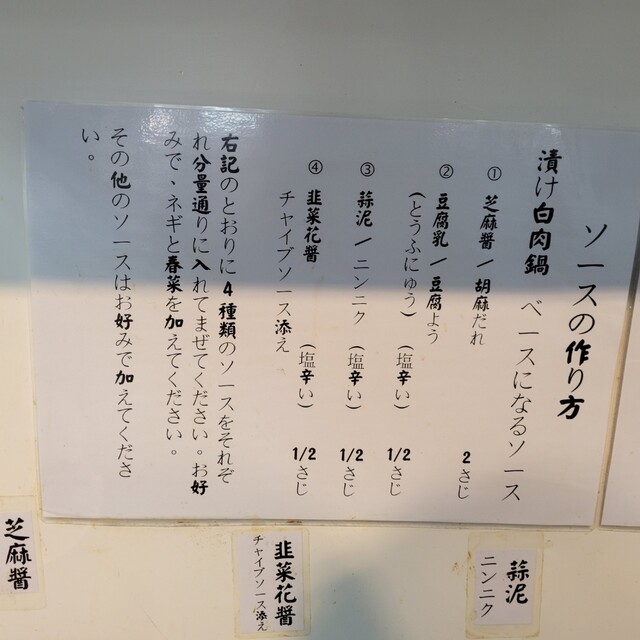 ソースの作り方
漬け白肉鍋　ベースになるソース
① 芝麻醬 / 胡麻だれ　2 さじ
② 豆腐乳 / 豆腐よう
(とうふにゅう) (塩辛い) 1/2 さじ
③ 蒜泥 / ニンニク (塩辛い) 1/2 さじ
④ 韭菜花醬 (塩辛い) 1/2 さじ
チャイブソース添え
右記のとおりに 4 種類のソースをそれぞ
れ分量通りに入れてまぜてください。お好
みで、ネギと春菜を加えてください。
その他のソースはお好みで加えてくださ
い。
蒜泥
ニンニク
韭菜花醬
チャイブソース添え
芝麻醬